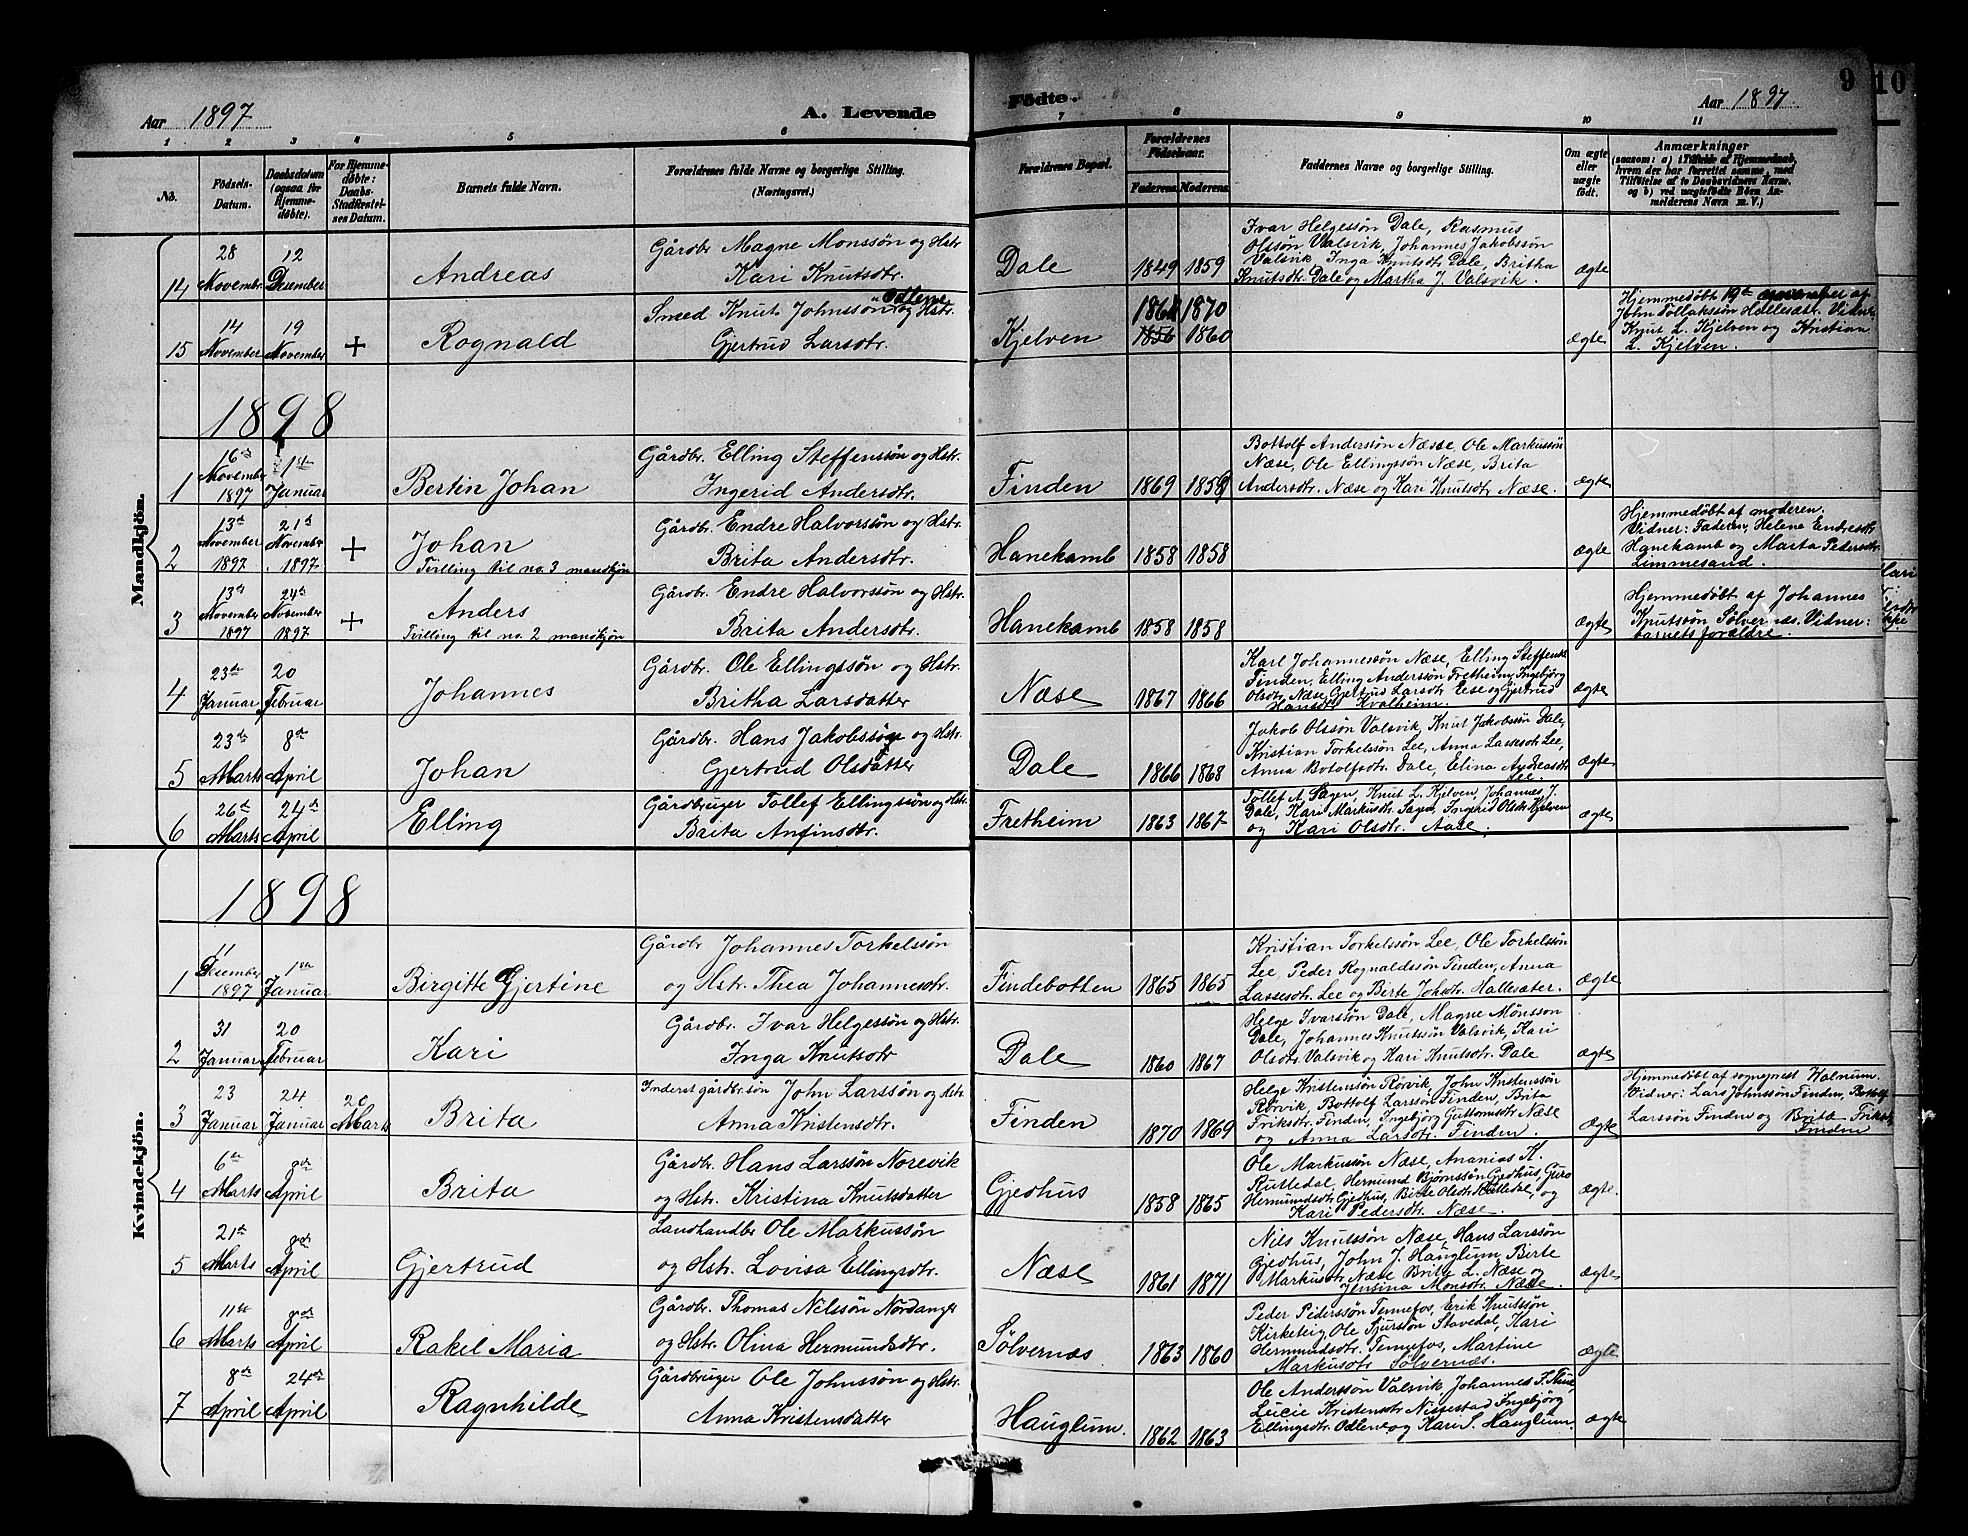 Aar 1897 A. Levende Fødte. Aar 1897. 9 10
1 2 3 4 5 6 7 8 9 10 11
No. Fødsels-Datum. Daabsdatum (ogsaa for Hjemmedøbte). For Hjemmedøbte: Daabs-Stadfæstelses Datum. Barnets fulde Navn. Forældrenes fulde Navne og borgerlige Stilling. (Næringsvei.) Forældrenes Bopæl. Forældrenes Fødselsaar. Faderens. Moderens. Faddernes Navne og borgerlige Stilling. Om ægte eller uægte født. Anmærkninger (saasom: a) i Tilfælde af Hjemmedaab, hvem der har forrettet samme, med Tilføielse af to Daabsvidners Navne, og b) ved uægtefødte Børn Anmelderens Navn m. V.)
Mandkjön.
14 28 November 12 Desember Andreas Gårdbr. Magne Monssøn og Hstr. Kari Knutsdtr. Dale 1849 1859 Ivar Helgessøn Dale, Rasmus
Olssøn Valsvik, Johannes Jakobssøn
Valsvik, Inga Knutsdt. Dale, Britha
Knutsdtr. Dale og Martha J. Valsvik. ægte
15 14 November 19 November + Rognald Smed Knut Johnssøn Odlerne og Hstr. Gjertrud Larsdtr. Kjelven 1861 1870 1856 1860 ægte Hjemmedøbt 19de november af
John Tollakssøn Hellesæt. Vidner
Knut L. Kjelven og Kristian
L. Kjelven.
1898
1 16de November 1897 1ste Januar Bertin Johan Gårdbr. Elling Steffenssøn og Hstr. Ingerid Andersdtr. Finden 1869 1859 Bottolf Anderssøn Næse, Ole Markussøn
Næse, Ole Ellingssøn Næse, Brita
Andersdtr. Næse og Kari Knutsdtr Næse. ægte
2 13de November 1897 21de November 1897 + Johan Tvilling til no. 3 mandkjøn Gårdbr. Endre Halvorssøn og Hstr. Brita Andersdtr. Hanekamb 1858 1858 ægte Hjemmedøbt af moderen.
Vidner: Faderen, Helene Endresdtr
Hanekamb og Marta Pedersdtr.
Limmesand.
3 13de November 1897 24de November 1897 + Anders Tvilling til no. 2 mandkjøn Gårdbr. Endre Halvorssøn og Hstr. Brita Andersdtr. Hanekamb 1858 1858 ægte Hjemmedøbt af Johannes
Knutssøn Sølvernæs. Vidner:
barnets forældre.
4 23de Januar 20 Februar Johannes Gårdbr. Ole Ellingssøn og Hstr. Britha Larsdatter Næse 1867 1866 Karl Johannessøn Næse, Elling Steffenss.
Finden, Elling Anderssøn Fretheim, Ingebjörg
Olsdtr. Næse, Gjertrud Larsdtr. Ese og Gjertrud
Hansdtr. Kvalheim. ægte
5 23de Marts 8de April Johan Gårdbr. Hans Jakobssøn og Hstr. Gjertrud Olsdatter Dale 1866 1868 Jakob Olssøn Valsvik, Knut Jakobssøn Dale,
Kristian Torkelssøn Lee, Anna Lassesdt. Lee,
Anna Botolfsdtr. Dale, Elina Andreasdtr.
Lee. ægte
6 26de Marts 24de April Elling Gårdbruger Tollef Ellingssøn og Hstr. Brita Anfinsdtr. Fretheim 1863 1867 Tollef A. Sagen, Knut L. Kjelven, Johannes J.
Dale, Kari Markusdtr. Sagen, Ingerid Olsdtr. Kjelven
og Kari Olsdtr. Aase. ægte
1898
Kvindekjön.
1 11 Desember 1897 1ste Januar Birgitte Gjertine Gårdbr Johannes Torkelssøn og Hstr. Thea Johannesdtr. Findebotten 1865 1865 Kristian Torkelssøn Lee, Ole Torkelssøn
Lee, Peder Rognaldssøn Finden, Anna
Lassesdtr. Lee og Birte Johsdtr. Hallesæter. ægte
2 31 Januar 20 Februar Kari Gårdbr. Ivar Helgessøn og Hstr. Inga Knutsdtr Dale 1860 1867 Helge Ivarssøn Dale, Magne Mönsson
Dale, Johannes Knutssøn Valsvik, Kari
Olsdtr. Valsvik og Kari Knutsdtr. Dale ægte
3 23 Januar 24 Januar 20 Marts Brita Inderst gårdbr.søn John Larssøn og Hstr. Anna Kristensdtr. Finden 1870 1869 Helge Kristenssøn Rörvik, John Kristenssøn
Rörvik, Bottolf Larssøn Finden, Brita
Friksdtr. Finden, Ingebjörg Guttormsdtr Næse
og Anna Larsdtr. Finden. Ægte Hjemmedøbt af sognepræst Walnum.
Vidner: Lars Johnssøn Finden, Bottolf
Larssøn Finden og Brita Friksdt.
Finden
4 6te Marts 8de April Brita Gårdbr. Hans Larssøn Norevik og Hstr. Kristina Knutsdatter Gjedhus 1858 1865 Ole Markussøn Næse, Ananias K.
Rutledal, Hermund Bjørnssøn Gjedhus, Guro
Hermundsdtr Gjedhus, Birte Olsdtr. Rutledal, og
Kari Pedersdtr. Næse. ægte.
5 21de Marts 8de April Gjertrud Landhandler Ole Markussøn og Hstr. Lovisa Ellingsdtr. Næse 1861 1871 Nils Knutssøn Næse, Hans Larssøn
Gjedhus, John J. Hauglum, Birte
Markusdtr Næse, Brite L. Næse og
Jensina Monsdtr. Næse. ægte
6 11te Marts 8de April Rakel Maria Gårdbr. Thomas Nilssøn Nordanger og Hstr. Olina Hermundsdtr. Sølvernæs 1863 1860 Peder Pederssøn Tennefos, Erik Knutssøn
Kirketeig, Ole Sjurssøn Stavedal, Kari
Hermundsdtr. Tennefos, Martine
Markusdtr Sølvernæs. ægte
7 8de April 24de April Ragnhilde Gårdbruger Ole Johnssøn og Hstr. Anna Kristensdatter Hauglum. 1862 1863 Ole Anderssøn Valsvik, Johannes T.
Lucie Kristensdtr Nissestad, Ingebjörg
Ellingsdtr. Odlene og Kari S. Hauglum. ægte